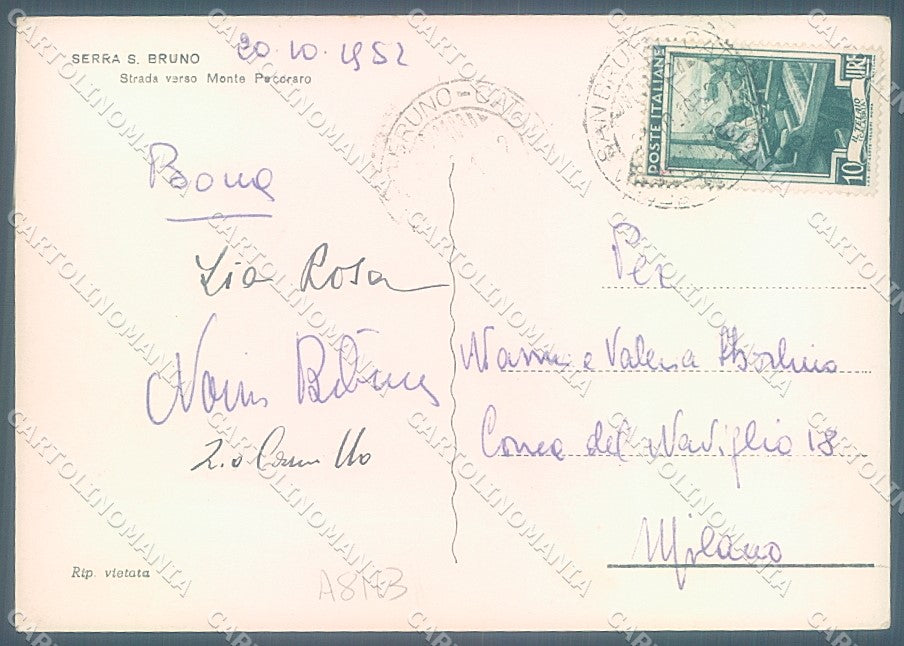 SERRA S. BRUNO
Strada verso Monte Pecoraro
20.10.1952
Zia Rosa
Zio Camillo
Rip. vietata
POSTE ITALIANE
LIRE
10
Per
e Valeria
Conca del Naviglio 18
Milano
CARTOLINOMANIA